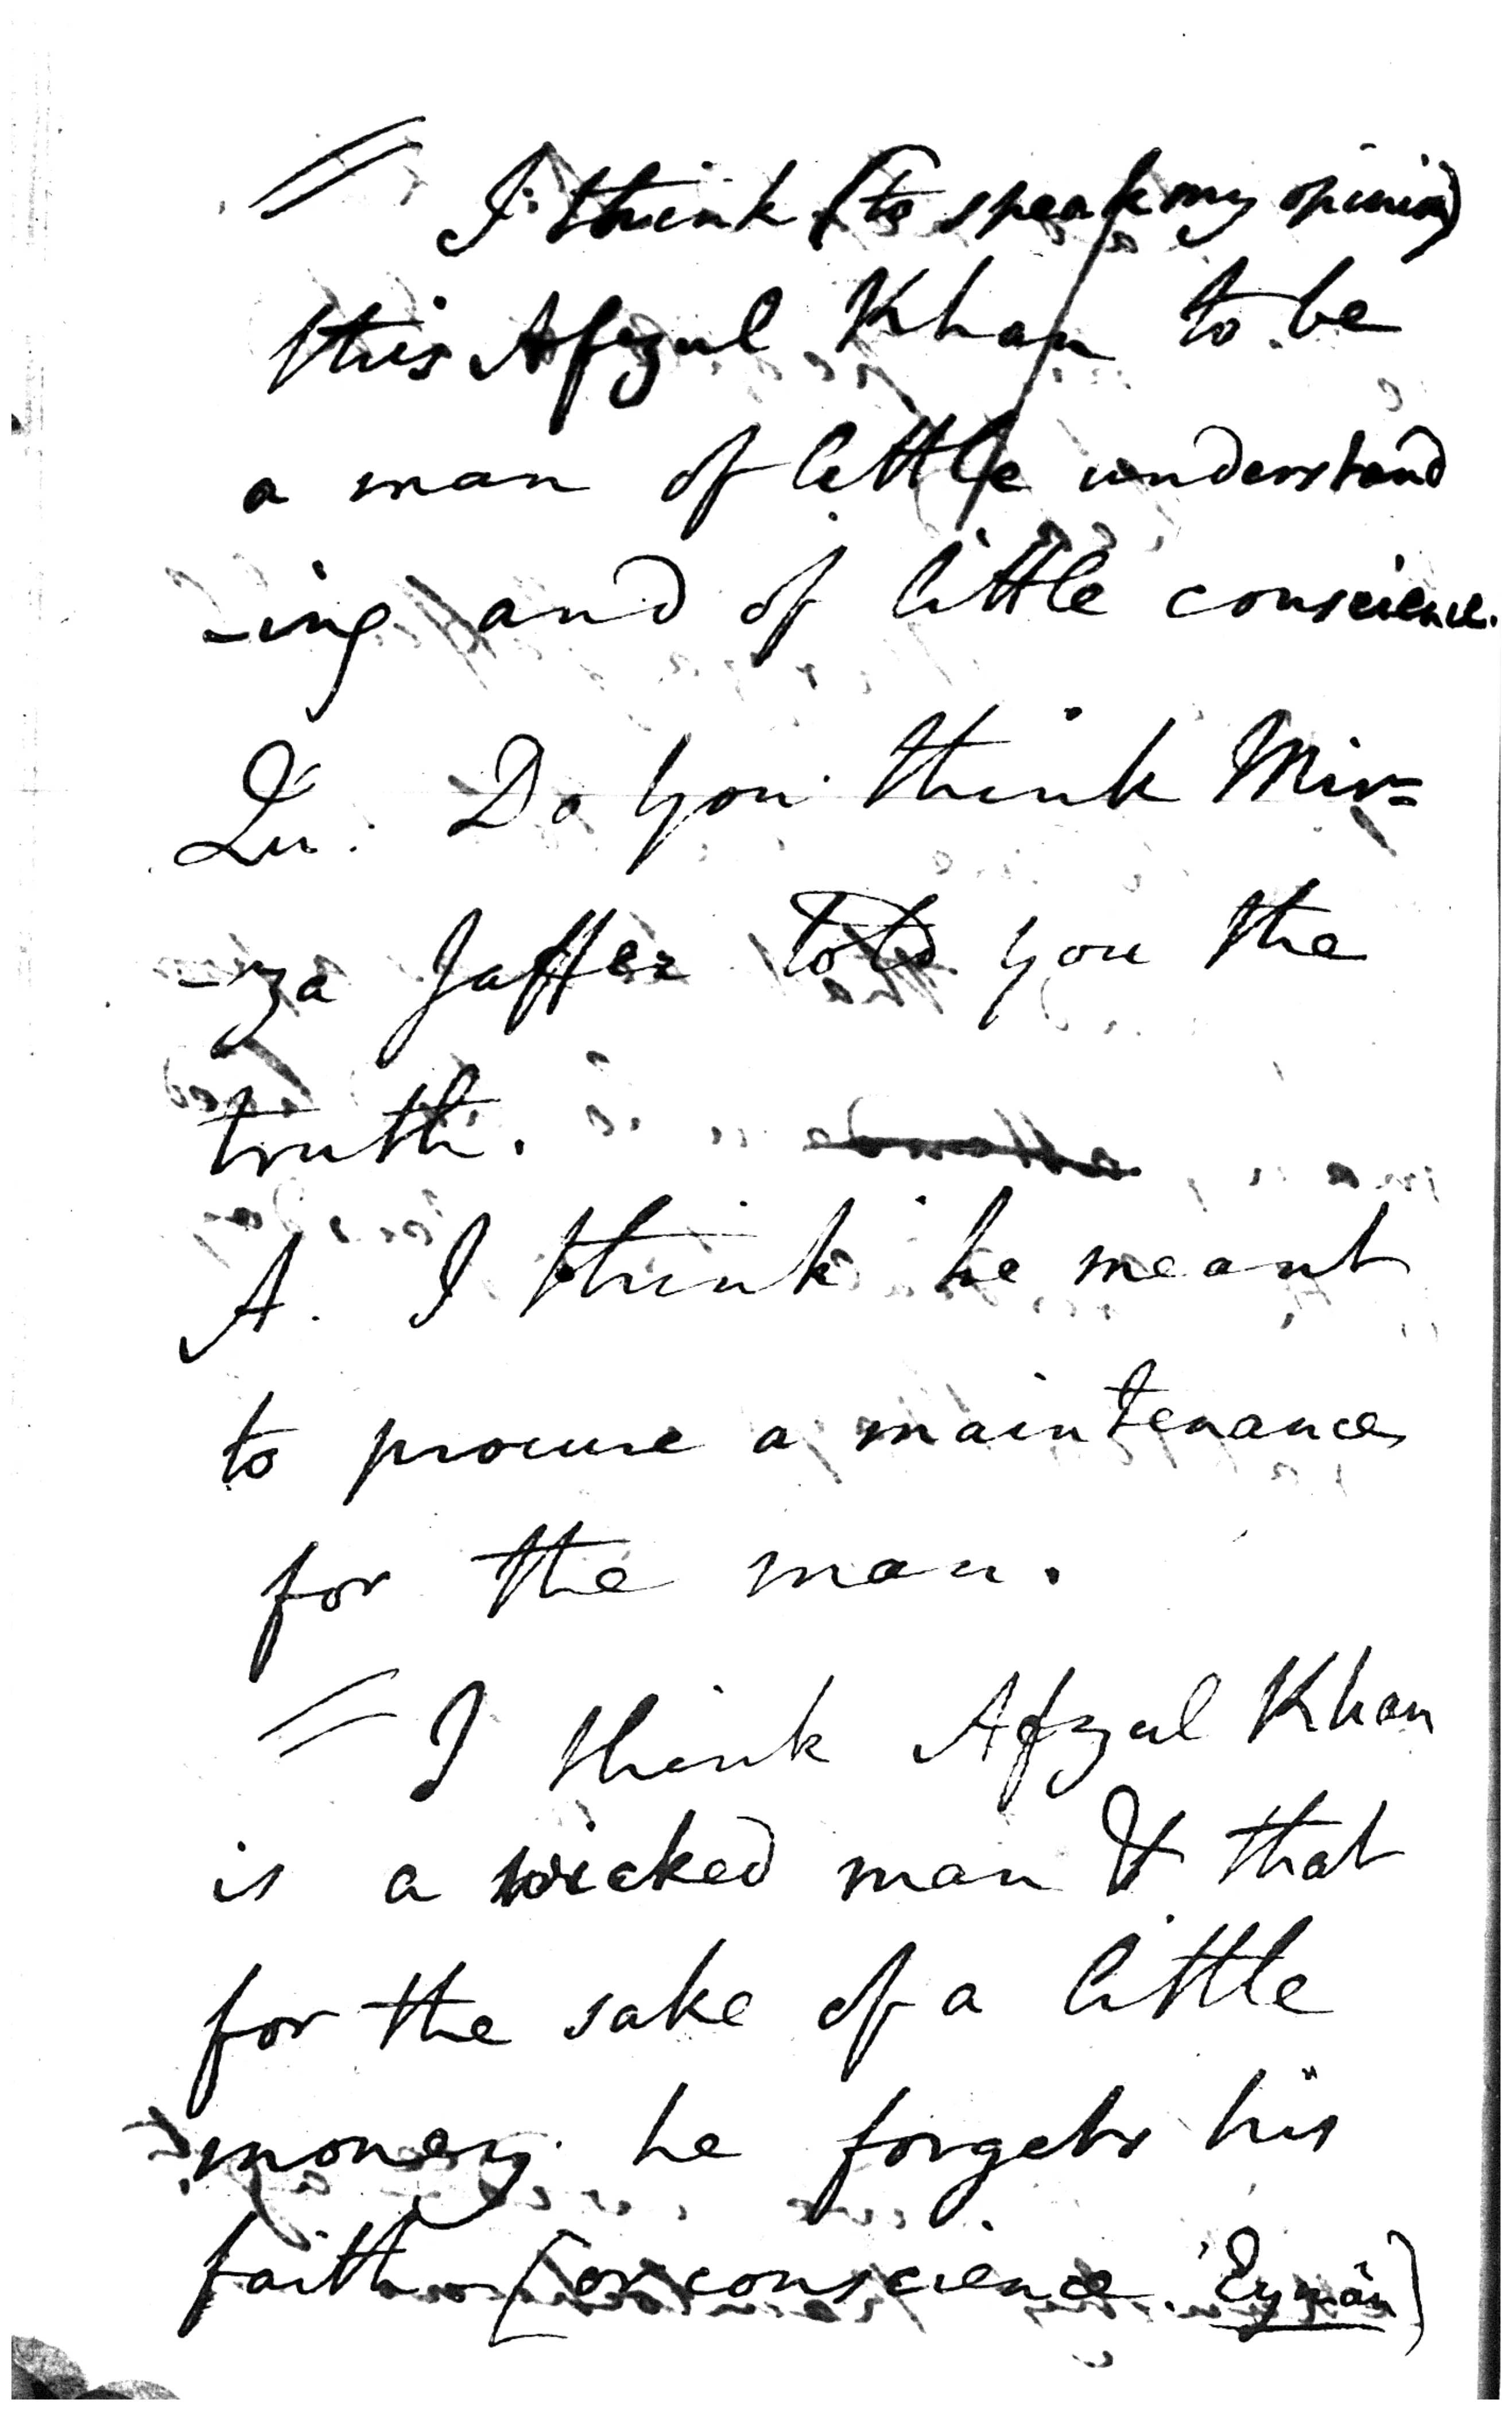 = I think (to speak my opinion)
this Afzul Khan to be
a man of little understand
-ing and of little conscience.
Qu. Do you think Mir=
-za Jaffer told you the
truth.
A. I think he meant
to procure a maintenance
for the man.
= I think Afzul Khan
is a wicked man & that
for the sake of a little
money he forgets his
faith (or conscience Eymân)